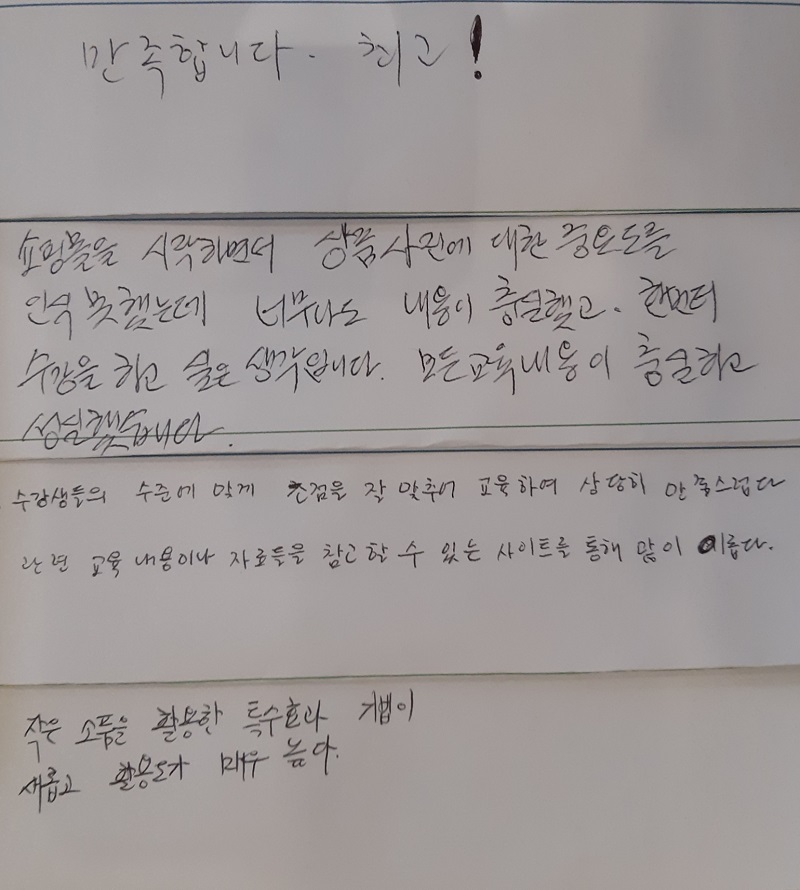 만족합니다. 최고!
쇼핑몰을 시작하면서 상품사진에 대한 중요도를
인식 못했는데 너무나도 내용이 충실했고. 한번더
수강을 하고 싶은 생각입니다. 모든교육내용이 충실하고
성실했습니다.
수강생들의 수준에 맞게 촛점을 잘 맞추어 교육하여 상당히 만족스럽다
관련 교육 내용이나 자료들을 참고할 수 있는 사이트를 통해 많이 이롭다.
작은 소품을 활용한 특수효과 기법이
새롭고 활용도가 매우 높다.